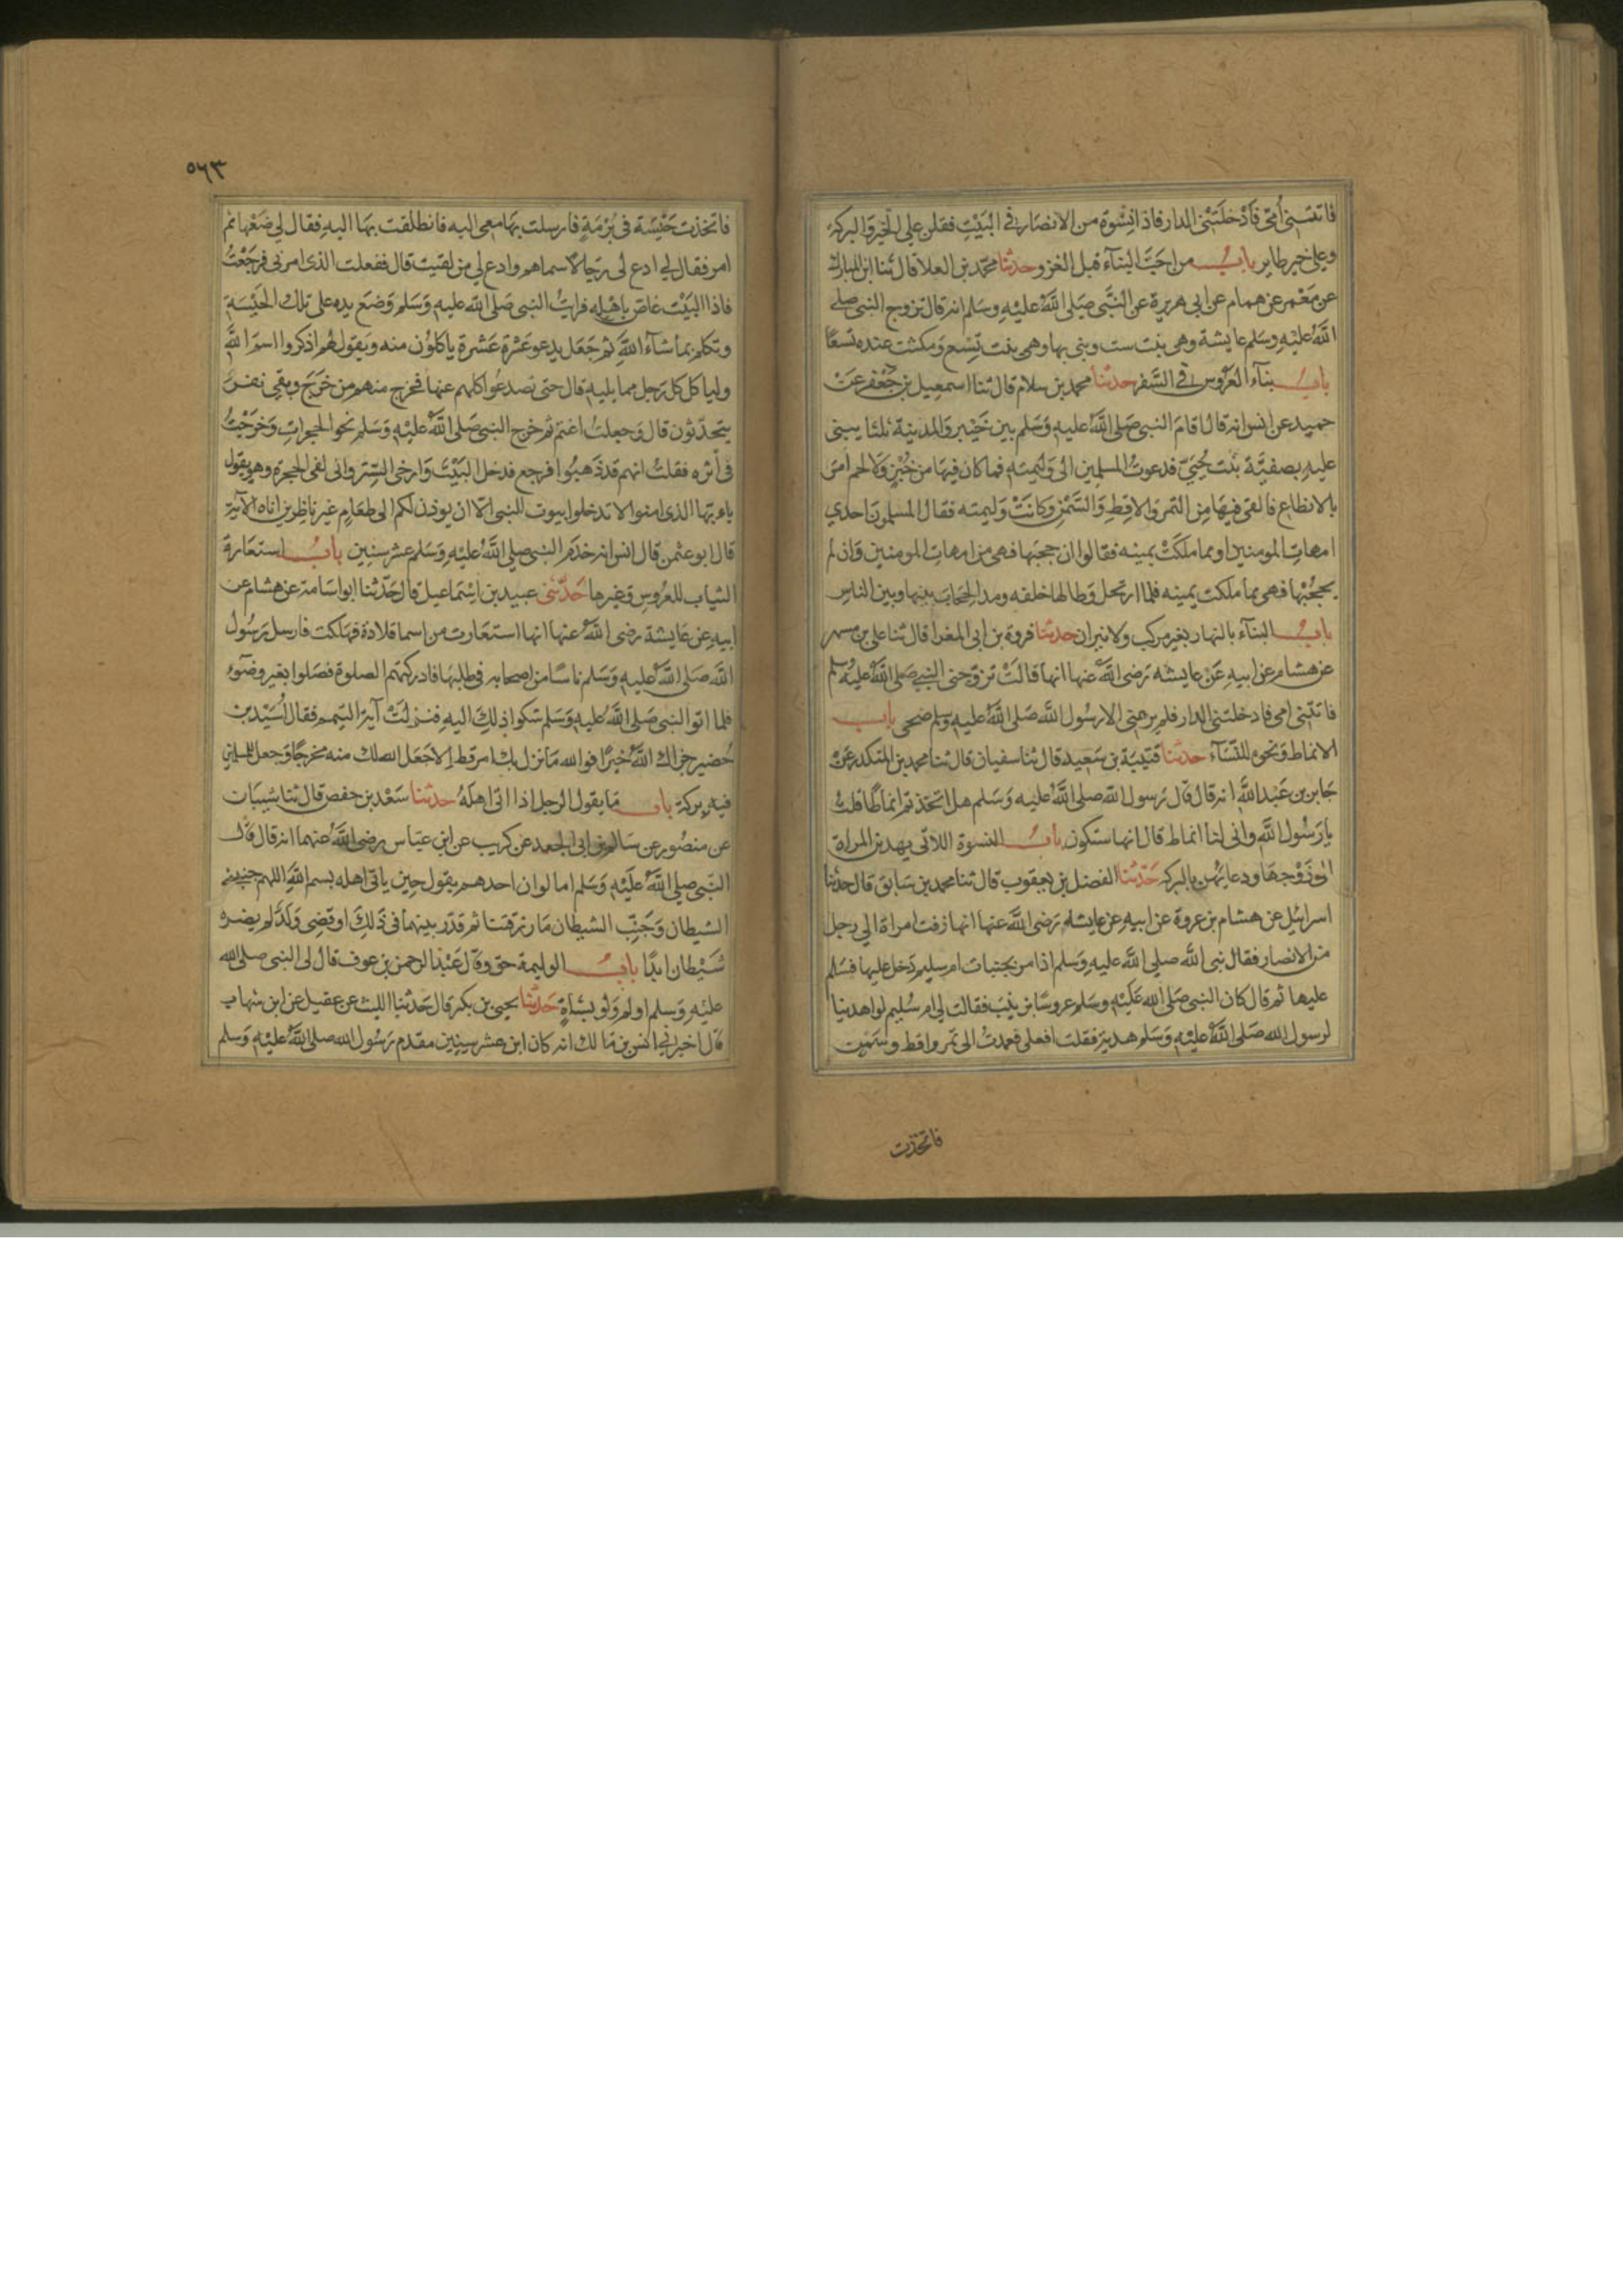 فاتتني أمي فَأَدْخَلَتْنِي الدار فاذا نِسْوة من الانصَار في الْبَيْتِ فقلن على الخير والبركة
وعلى خير طاير باب من احَبَّ البنآء قبل الغزو حدثنا محمد بن العلا قال ثنا ابن المبارك
عن مَعْمر عن همام عن ابى هريرة عن النَّبى صَلى اللهُ عَليْهِ وسَلم انه قال تزوج النبى صلى
اللهُ عليْهِ وسَلم عايشة وهى بنت ست وبنى بها وهى بنت تِسْع وَمكثت عنده تسعًا
باب بنآء العَرُوس في السَّفر حدثنا محمد بن سلام قال ثنا اسمعيل بن جَعْفر عَنْ
حميد عن انس انه قال اقامَ النبى صَلى اللهُ عليهِ وَسَلم بين خَيْبر وَالمدينة ثلثا يبنى
عليهِ بصفيَّة بنْت حُيَيّ فدعوتُ المسلمين الى وَليمته فما كان فيهَا من خُبْزٍ وَلا لحم امرَ
بالانطاع فالقى فيهَا مِنَ التمر وَالاقِطِ وَالسَّمْن وكانَتْ وَليمته فقال المسلمون احدي
امهاتِ المومنين او مما ملَكَتْ يمينه فقالوا ان حجبَها فهى من امهاتِ المومنين وَان لم
يحجُبْها فهى مما ملكت يمينه فلما ارتحل وَطا لها خلفه ومد الحِجَاب بينها وبين الناسِ
باب البنآء بالنهار بغير مركب ولا نيران حدثنا فروة بن ابى المغرا قال ثنا على بن مسهر
عن هشام عن ابيهِ عَنْ عايشه رَضى اللهُ عَنها انها قالَتْ تزوّجنى النبي صَلى اللهُ عليْهِ وسلم
فاتتنى امى فادخلتنى الدار فلم يرعنى الا رسُول الله صَلى اللهُ عليهِ وسلم ضحى باب
الانماط وَنحوه للنّسَآء حدثنا قتيبَة بن سَعيد قال ثنا سفيان قال ثنا محمد بن المنكدر عَنْ
جَابر بن عَبْد اللهِ انه قال قال رَسول الله صلى اللهُ عليه وَسَلم هل اتخذتم انماطًا قلتُ
يا رَسُول اللهِ وانى لنا انماط قال انها ستكون باب النسوة اللاتى يهدين المراة
الى زَوْجهَا ودعايهن بالبركة حَدّثنا الفضل بن يعقوب قال ثنا محمد بن سَابق قال حدثنا
اسرائيل عن هشام بن عروة عن ابيهِ عن عايشه رَضى اللهُ عنها انها زفت امراة الي رجل
من الانصار فقال نبى الله صلي الله عليهِ وسَلم اذا مر بجنبات ام سليم دَخل عليها فسَلم
عليها ثم قال كان النبى صَلى الله عَلَيْهِ وسَلم عروسًا بزينبَ فقالت لي ام سُليم لو اهدينا
لرسول الله صَلى اللهُ عليْهِ وَسَلم هدية فقلت افعلى فعمدتُ الى تمر واقط وسَمْن
فاتخذت
٥٦٣
فاتخذت حَيْسَة فى بُرْمَةٍ فارسلت بهَا معى اليه فانطلقت بهَا اليهِ فقال لي ضَعْها ثم
امر فقال لي ادع لى رجالا سماهم وادع لي من لقيت قال ففعلت الذى امرنى فرجَعْتُ
فاذا البَيْت غاصّ بِاهْلِه فرايتُ النبى صَلى الله عليهِ وَسَلم وَضَع يده على تلك الحَيْسَةِ
وتكلم بما شآءَ اللهُ ثم جَعَل يدعو عَشْرة عَشرة ياكلوُن منه وَيقول لهُم اذكروا اسمَ اللهِ
ولياكل كل رَجل مما يليهِ قال حتى تصدعُوا كلهم عنها فخرج منهم من خَرَجَ وبقى نفرٌ
يتحدّثون قال وَجعلتُ اغتم ثم خرج النبى صَلى اللهُ عليْهِ وَسَلم نحو الحجراتِ وَخرَجْتُ
فى أثره فقلتُ انهم قد ذَهبُوا فرجع فدخل البَيْتَ وَارخى السِّتر وانى لفى الحجرة وهو يقول
ياءيها الذى امنوا لا تدخلوا بيوت النبى الّا ان يوذن لكم الى طعَامٍ غير ناظِرين اناه الآية
قال ابو عثمن قال انس انه خدَم النبى صلى اللهُ عليْهِ وَسَلم عشر سِنِين باب استعَارة
الثياب للعُروسِ وَغيرها حَدّثنى عبيد بن اسْمَاعيل قال حَدّثنا ابو اسَامة عن هشام عن
ابيهِ عن عَايشة رضى اللهُ عنها انها استعَارت من اسما قلادة فهَلكت فارسل رَسُول
الله صَلى اللهُ عليهِ وَسَلم ناسًا من اصحابه فى طلبهَا فادركتهم الصلوة فصَلوا بغير وضوء
فلما اتو النبى صَلى اللهُ عليهِ وَسَلم شكوا ذلِك اليهِ فنزلتْ آية التيمم فقال أُسَيْد بن
حُضير جزاك اللهُ خيرًا فوالله مَا نزل بك امر قط الا جَعَل الله لك منه مخرجًا وَجعل للمسلمين
فيهِ بركة باب مَا يقول الرجل اذا اتى اهلَهُ حدثنا سَعْد بن حفص قال ثنا شيبَان
عن منصُور عن سَالم بن ابى الجعد عن كريب عن ابنِ عبَاس رضى اللهُ عنهما انه قال قال
النّبى صلي اللهُ عَلَيْهِ وَسَلم اما لو ان احدهم يقول حِين ياتى اهله بسم اللهِ اللهم جنبنى
الشيطان وَجَنِّبِ الشيطان مَا رزقتنا ثم قدّر بينهما فى ذَلِكَ او قضِى وَلَدٌ لم يضره
شَيْطان ابدًا باب الوليمة حق وقال عَبْد الرحمن بن عوف قال لى النبى صلى الله
عليْهِ وَسَلم اولم وَلَو بشاةٍ حَدثنا يحيى بن بكير قال حَدثنا الليث عن عقيل عن ابن شهاب
قال اخبرني انس بن مَالك انه كان ابن عشر سِنين مقدم رَسُول الله صلى اللهُ عليْهِ وَسَلم